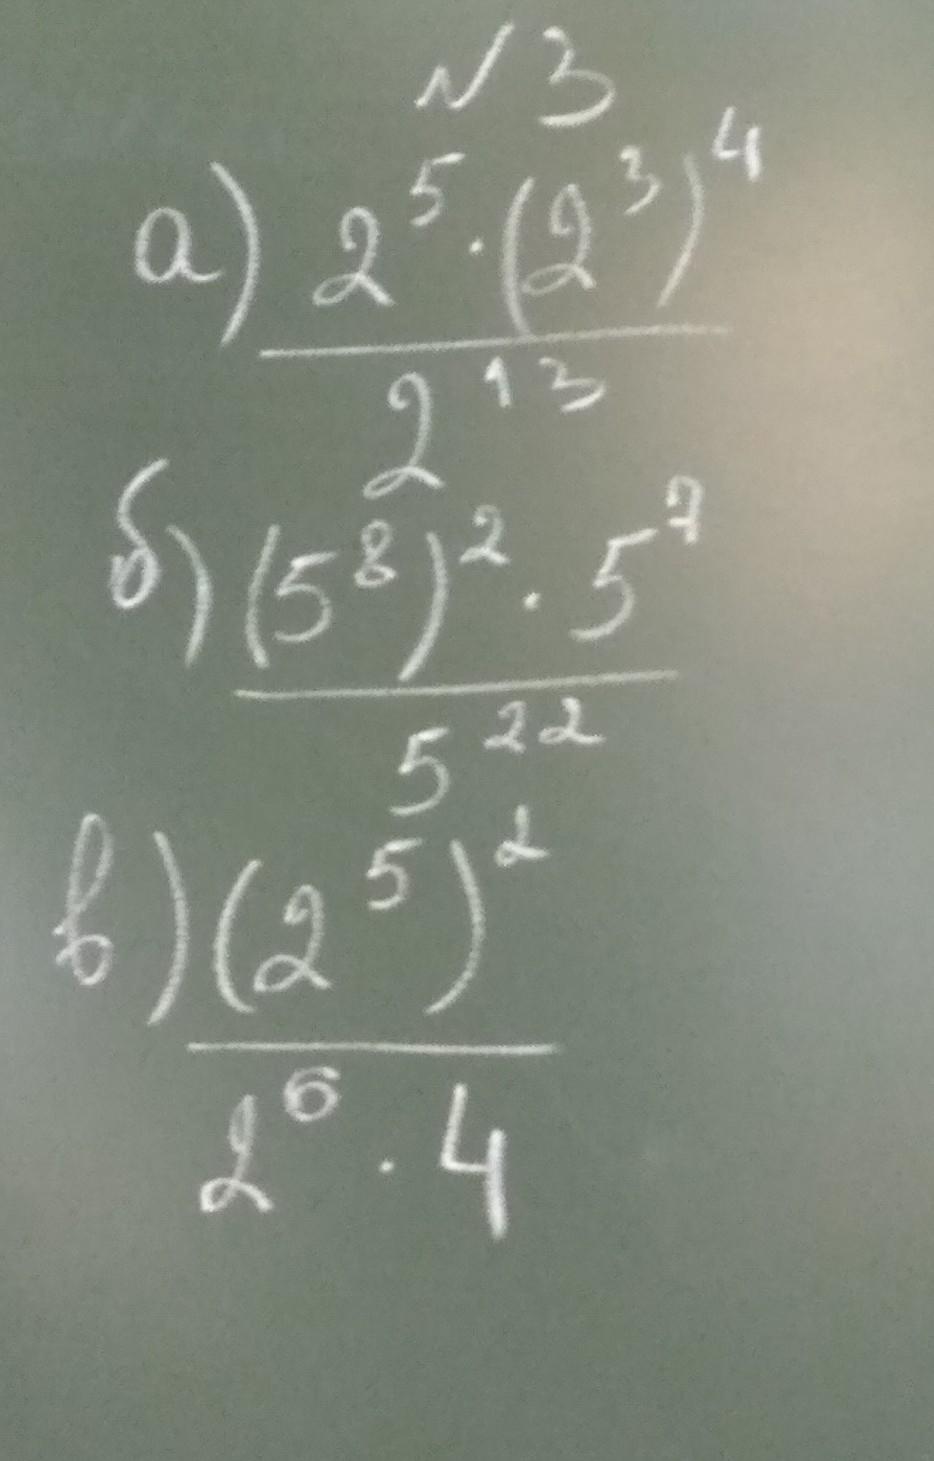 № 3
а) 2⁵ · (2³)⁴
2¹³
б) (5⁸)² · 5⁷
5²²
в) (2⁵)²
2⁶ · 4